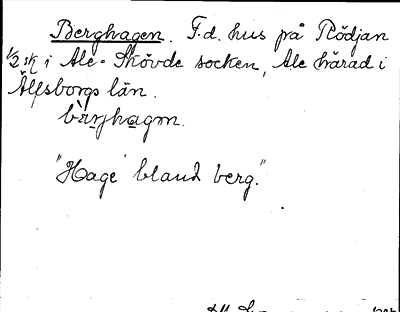 Berghagen. F.d. hus på Rödjan
1/2 sk i Ale-Skövde socken, Ale härad i
Älfsborgs län.
bærjhagɱ.
"Hage bland berg."